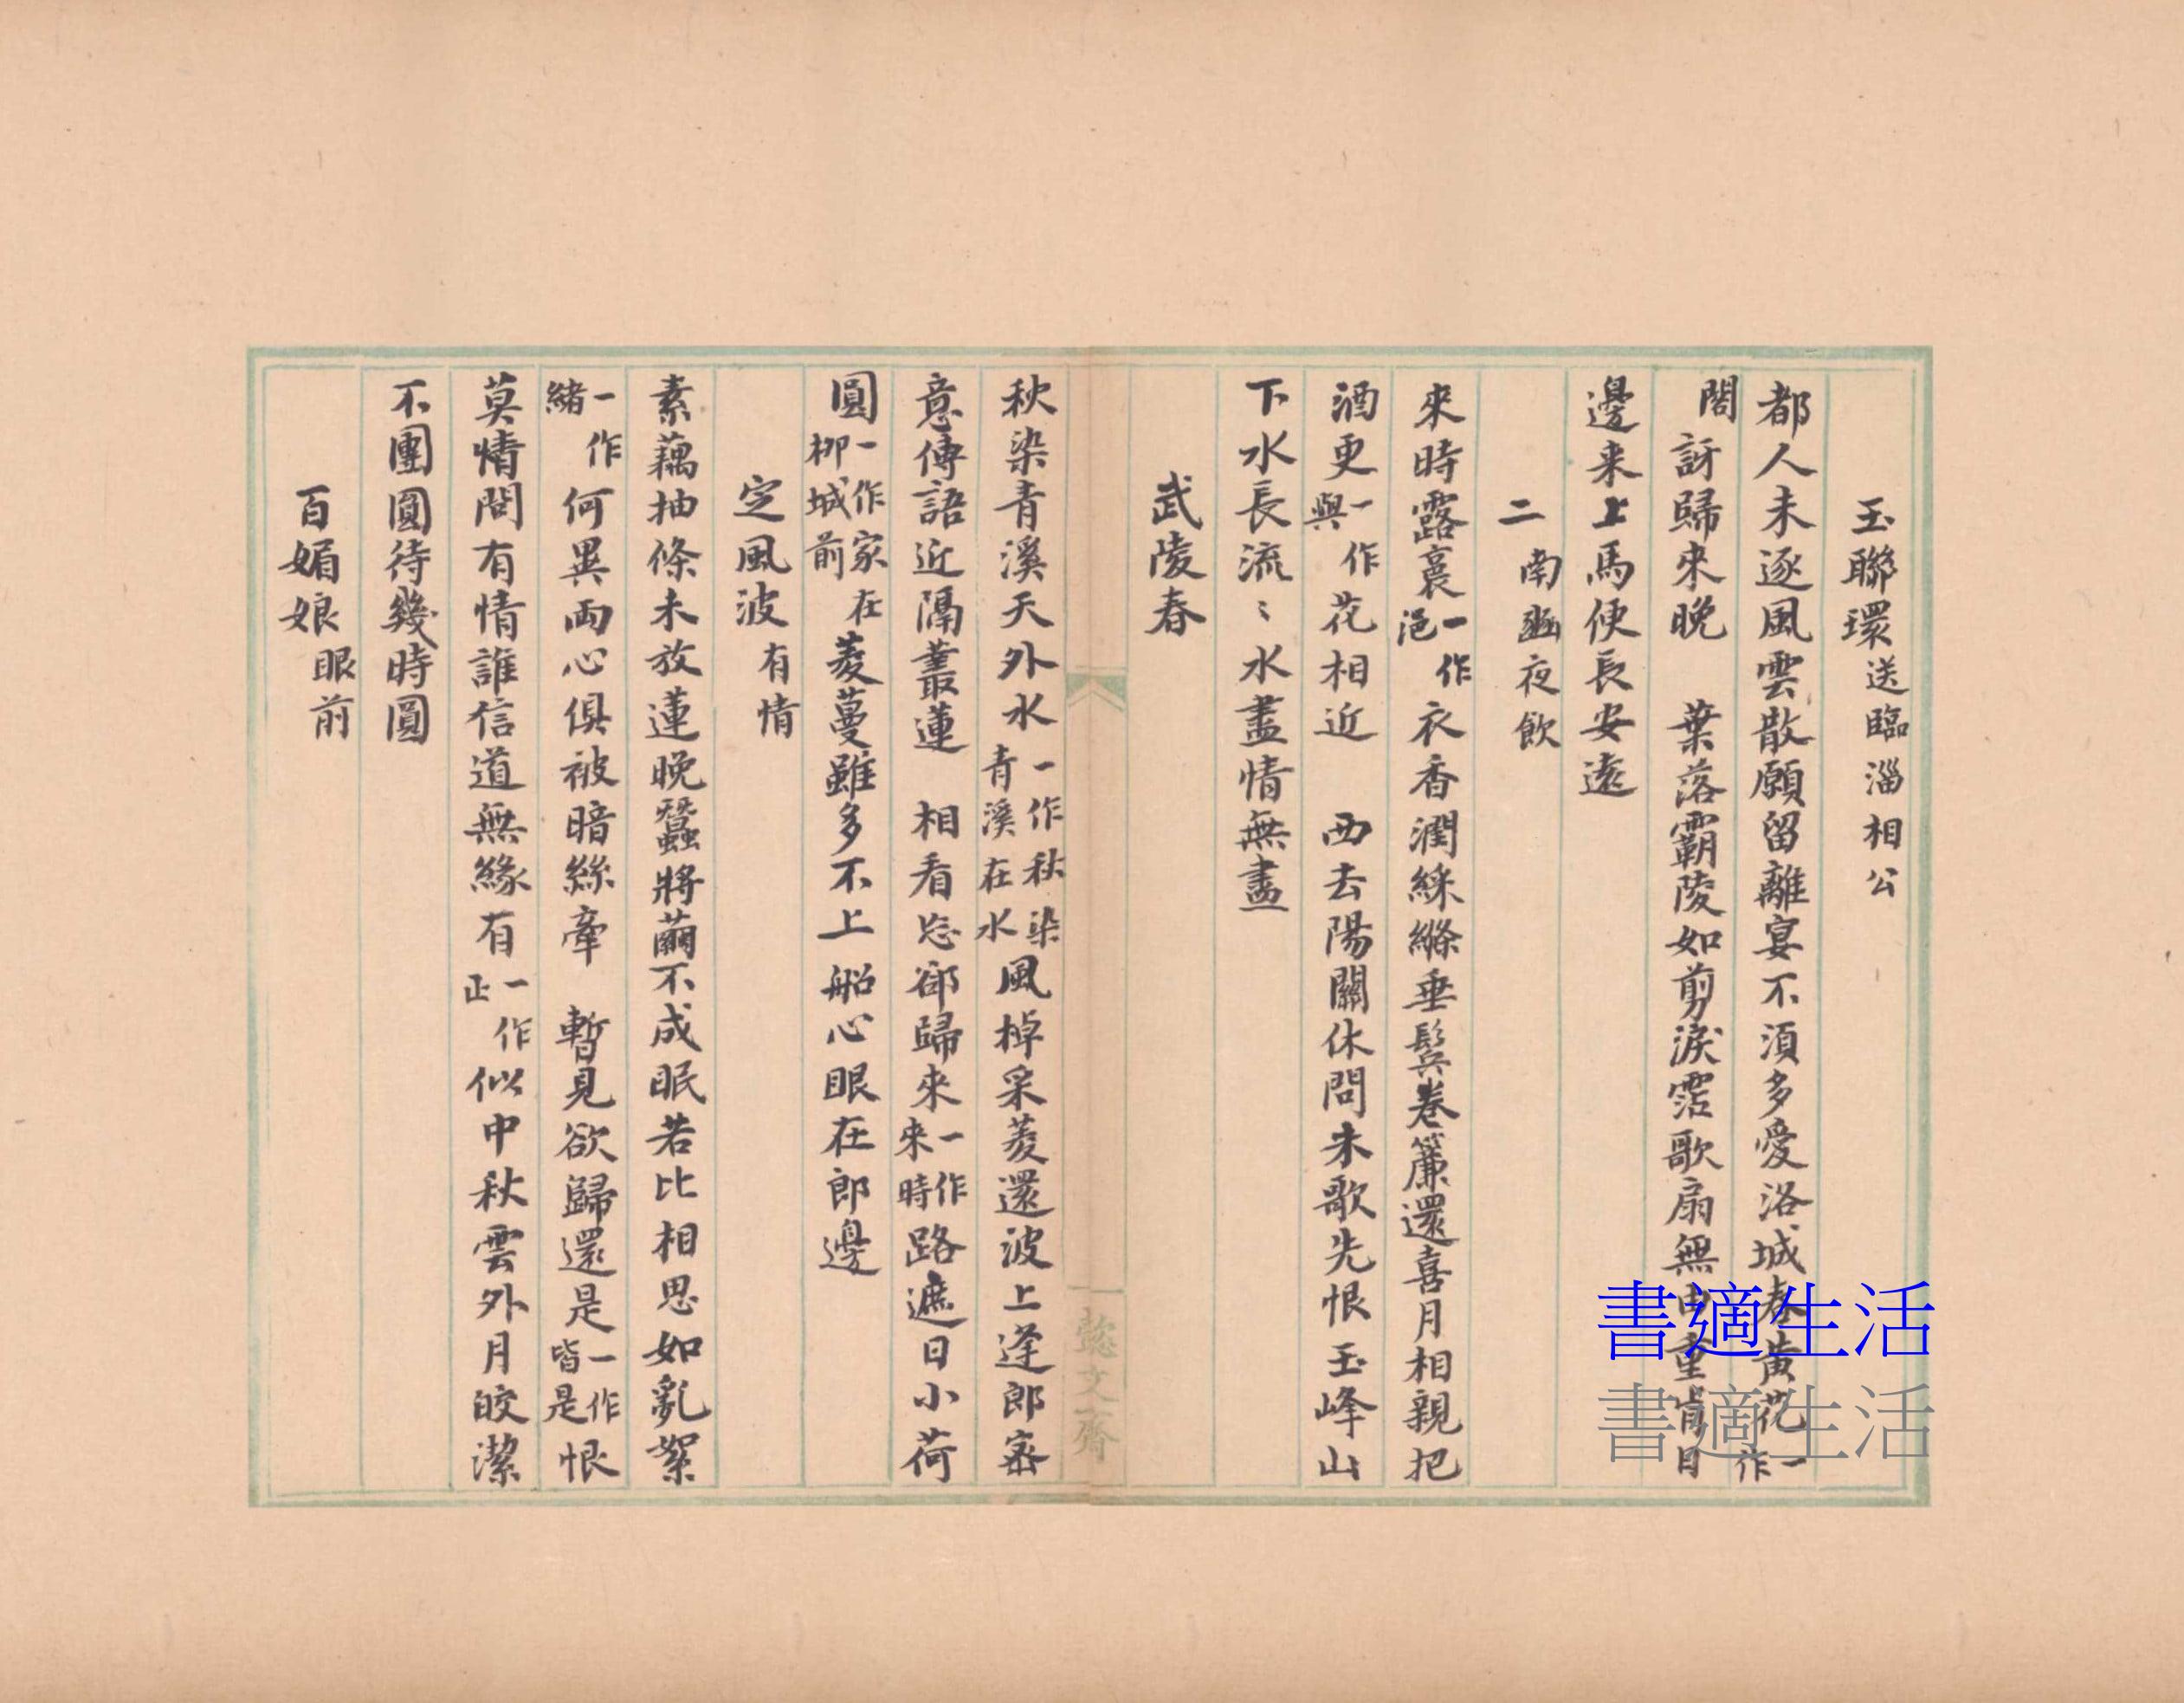 玉聯環送臨淄相公
都人未逐風雲散願留離宴不須多愛洛城春黃花一作
閣訝歸來晚　葉落霸陵如剪淚霑歌扇無由重肯日
邊来上馬便長安遠
二南幽夜飲
來時露裛一作浥衣香潤綵縧垂鬢卷簾還喜月相親把
酒更一作與花相近　西去陽關休問未歌先恨玉峰山
下水長流〻水盡情無盡
武陵春
秋染青溪天外水一作秋染青溪在水風棹采菱還波上逢郎密
意傳語近隔叢蓮　相看忩郤歸來一作來時路遮日小荷
圓一作家在柳城前菱蔓雖多不上船心眼在郎邊
定風波有情
素藕抽條未放蓮晚蠶將繭不成眠若比相思如亂絮
一作緒何異両心俱被暗絲牽　暫見欲歸還是一作皆是恨
莫情問有情誰信道無緣有一作正似中秋雲外月皎潔
不團圓待幾時圓
百媚娘眼前
一懿文齋
書適生活
書適生活